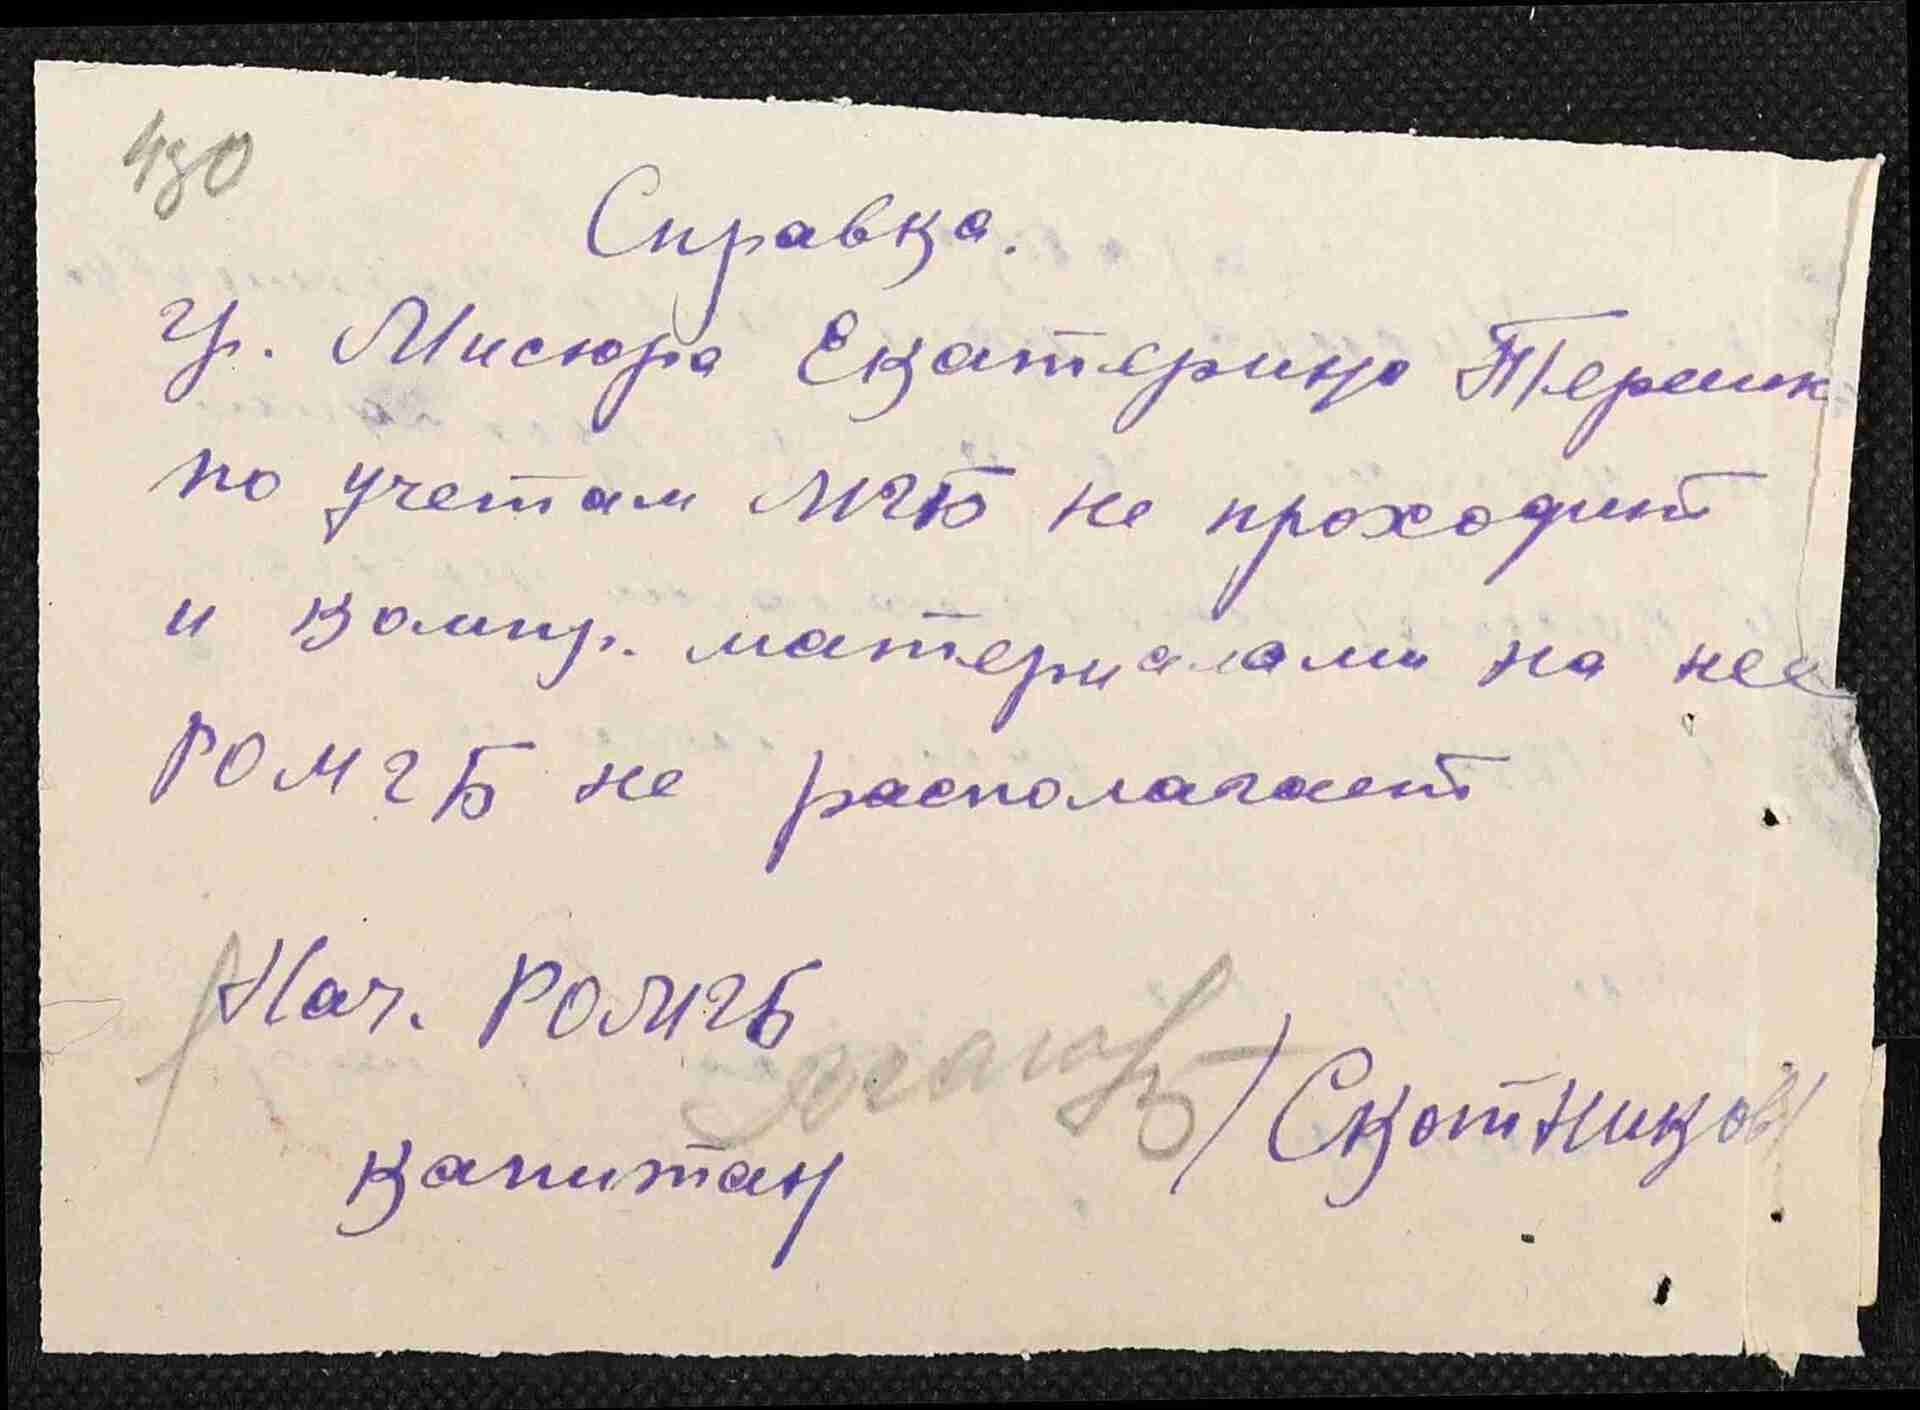 430
Справка.
Гр. Мисюра Екатерина
по учетам МГБ не проходит
и компр. материалами на нее
РОМГБ не располагает
Нач. РОМГБ
капитан
/Скотников/